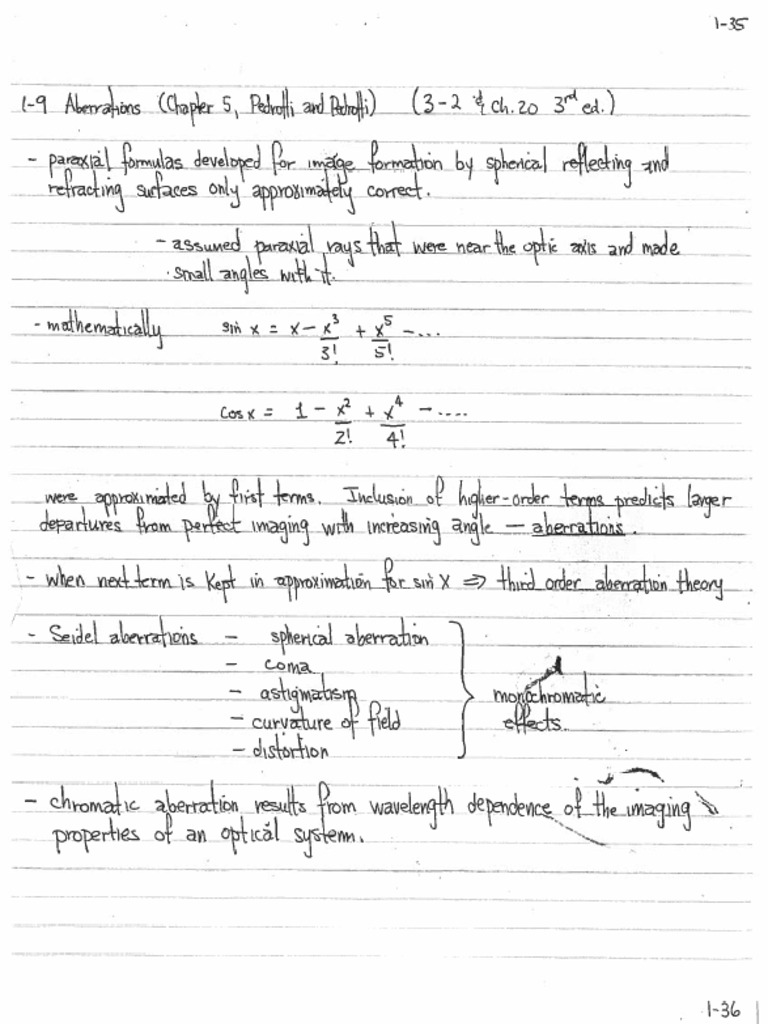 1-35
1-9 Aberrations (Chapter 5, Pedrotti and Pedrotti) (3-2 & Ch.20 3rd ed.)
- paraxial formulas developed for image formation by spherical reflecting and
refracting surfaces only approximately correct.
- assumed paraxial rays that were near the optic axis and made
small angles with it.
- mathematically sin x = x - x³/3! + x⁵/5! - ....
cos x = 1 - x²/2! + x⁴/4! - ....
were approximated by first terms. Inclusion of higher-order terms predicts larger
departures from perfect imaging with increasing angle — aberrations.
- when next term is kept in approximation for sin x ⇒ third order aberration theory
- Seidel aberrations - spherical aberration
- coma
- astigmatism
- curvature of field
- distortion
monochromatic
effects.
- chromatic aberration results from wavelength dependence of the imaging
properties of an optical system.
1-36